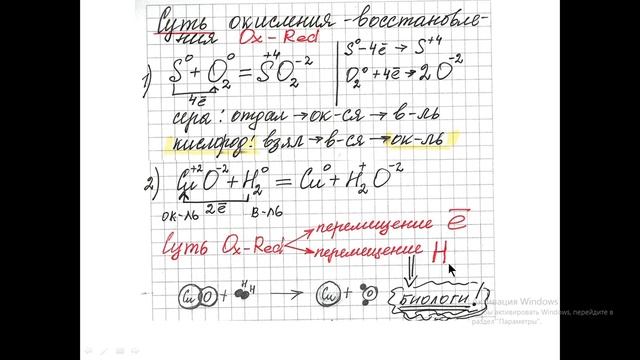 Суть окисления-восстановле-
ния Ox-Red
1) S⁰ + O₂⁰ = S⁺⁴O₂⁻²
4ē
S⁰ - 4ē → S⁺⁴
O₂⁰ + 4ē → 2O⁻²
сера: отдал → ок-ся → в-ль
кислород: взял → в-ся → ок-ль
2) Cu⁺²O⁻² + H₂⁰ = Cu⁰ + H₂⁺O⁻²
ок-ль 2ē в-ль
Суть Ox-Red перемещение ē
перемещение H
CuO + HH → Cu + O
биологи!
Активация Windows
активировать Windows, перейдите в
раздел "Параметры".